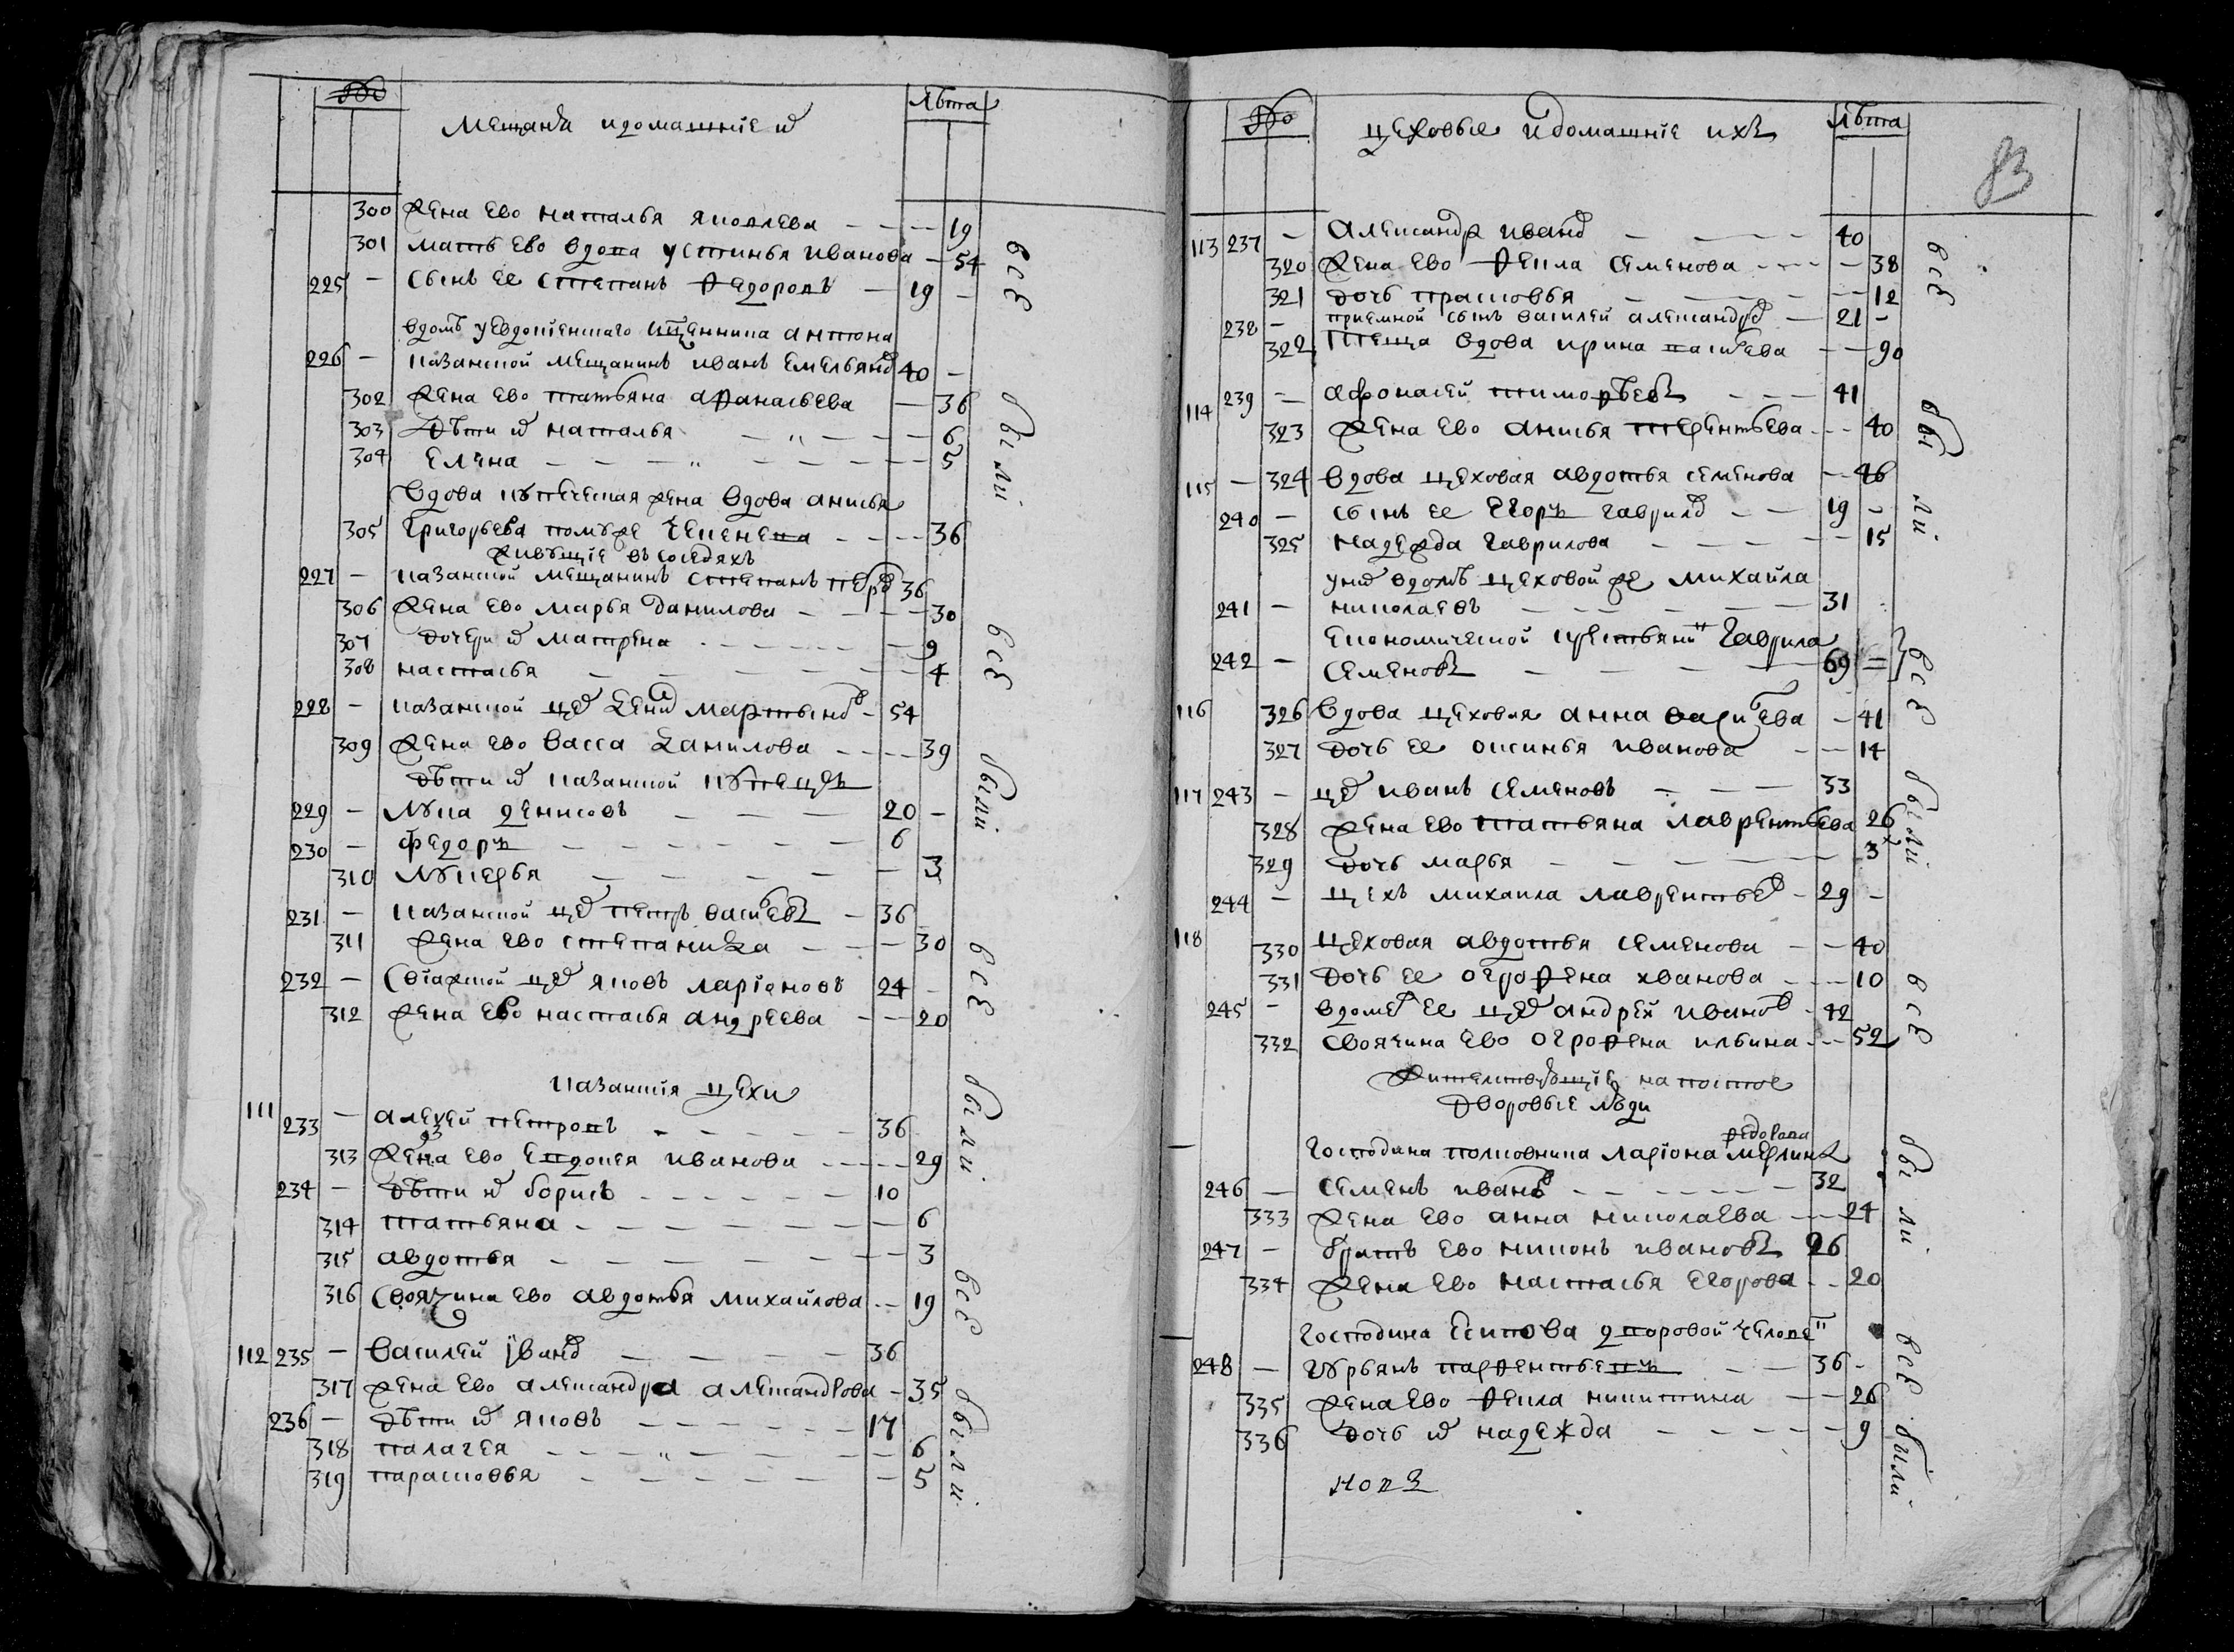 № Мещаня и домашние их Лѣта
300 Жена ево наталья яковлева 19
301 мать ево вдова устинья иванова 54
225 – сынъ ее степанъ федоровъ 19 –
вдомѣ у евдокиевскаго священника антона
226 – казанской мещанинъ иванъ емельяно 40 –
302 жена ево татьяна афанасьева 36
303 дѣти их наталья 6
304 елена 5
вдова купеческая жена вдова анисья
305 григорьева помуже 36
живущие въ соседяхъ
227 – казанской мещанинъ степанъ петро 36
306 жена ево марья данилова 30
307 дочери их матрена 9
308 настасья 4
228 – казанской цех денис мартыно 54
309 жена ево васса данилова 39
дѣти их казанской купецъ
229 – лука денисовъ 20 –
230 – федоръ 6
310 лукерья 3
231 – казанской цех петръ васильевъ 36
311 жена ево степанида 30
232 – свіажской цех яковъ ларіоновъ 24 –
312 жена ево настасья андреева 20
казанския цехи
111 233 – алексей петровъ 36
313 жена ево евдокея иванова 29
234 – дѣти их борисъ 10
314 татьяна 6
315 авдотья 3
316 своячина ево авдотья михайлова 19
112 235 – василей ивано 36
317 жена ево александра александрова 35
236 – дѣти их яковъ 17
318 палагея 6
319 парасковья 5
всѣ
были
всѣ
были
всѣ
были
всѣ
были
№ цеховые и домашніе ихъ Лѣта
83
113 237 – александр ивано 40
320 жена ево фекла семенова 38
321 дочь прасковья 12
238 – приемной сынъ василей александро 21 –
322 теща вдова ирина васильева 90
114 239 – афонасей тимофѣевъ 41
323 жена ево анисья терентьева 40
115 – 324 вдова цеховая авдотья семенова 46
240 – сынъ ее егоръ гаврило 19 –
325 надежда гаврилова 15
у них вдомѣ цеховой же михайла
241 – николаевъ 31
економической крестьянин гаврила
242 – семеновъ 69 =
116 326 вдова цеховая анна васильева 41
327 дочь ее оксинья иванова 14
117 243 – цех иванъ семеновъ 33
328 жена ево татьяна лаврентьева 26
329 дочь марья 3
244 – цехъ михаила лаврентье 29 –
118 330 цеховая авдотья семенова 40
331 дочь ее огрофена иванова 10
245 – вдоме ее цех андрей иванов 42
332 своячина ево огрофена ильина 52
жителствующіе на постое
дворовые люди
федорова
господина полковника ларіона мерлина
246 – семенъ иванов 32
333 жена ево анна николаева 24
247 – братъ ево никонъ ивановъ 26
334 жена ево настасья егорова 20
господина есипова дворовой челове
248 – курьянъ парфентьевъ 36 –
335 жена ево фекла никитина 26
336 дочь их надежда 9
всѣ
были
всѣ
были
всѣ
были
всѣ были